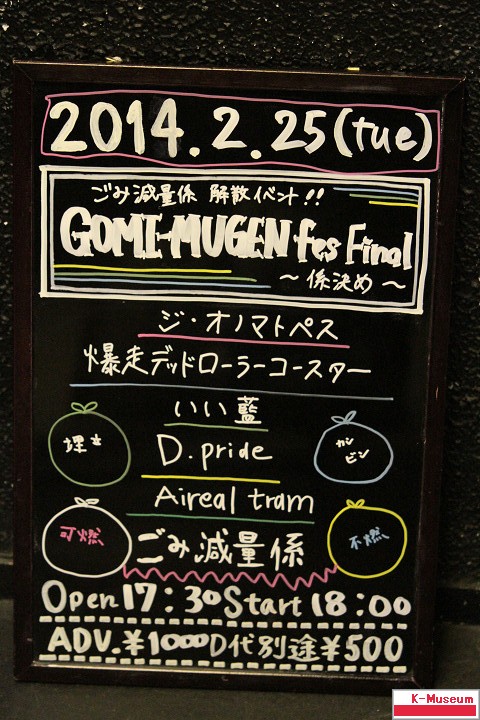 2014.2.25(tue)
ごみ減量係 解散イベント!!
GOMI-MUGEN fes Final
～係決め～
ジ・オノマトペス
爆走デッドローラーコースター
いい藍
埋立
D.pride
カン
ビン
Aireal tram
可燃
ごみ減量係
不燃
Open 17:30 Start 18:00
ADV.¥1000 D代別途¥500
K-Museum